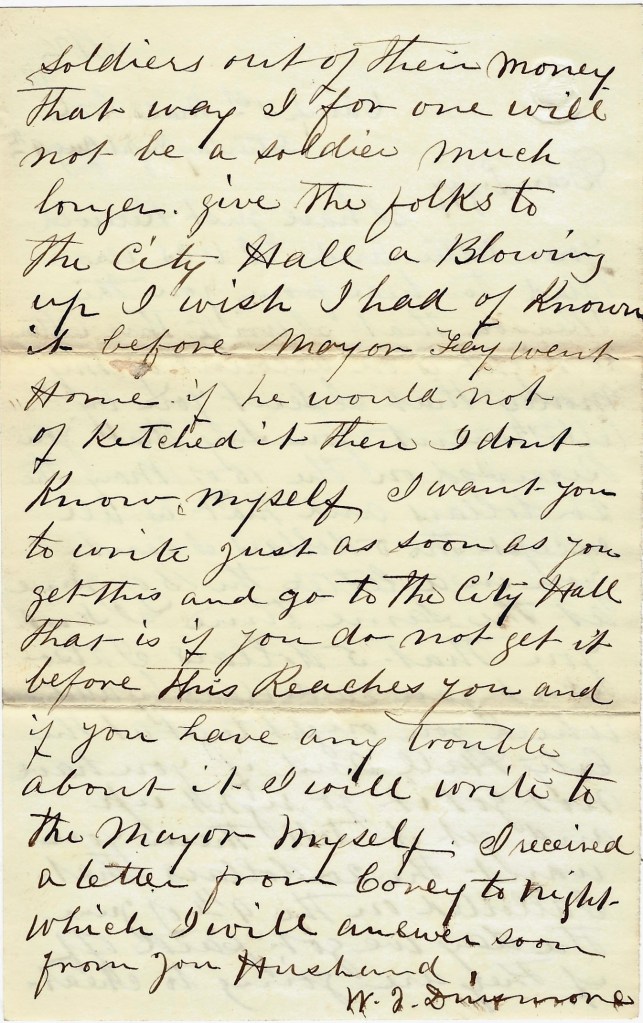 soldiers out of their money
that way I for one will
not be a soldier much
longer. give the folks to
the City Hall a Blowing
up I wish I had of Known
it before Mayor Fay went
Home. if he would not
of Ketched it then I dont
Know myself. I want you
to write just as soon as you
get this and go to the City Hall
that is if you do not get it
before this Reaches you and
if you have any trouble
about it I will write to
the Mayor Myself. I received
a letter from Covey to night
which I will answer soon
from you Husband
W. J. Dinsmore